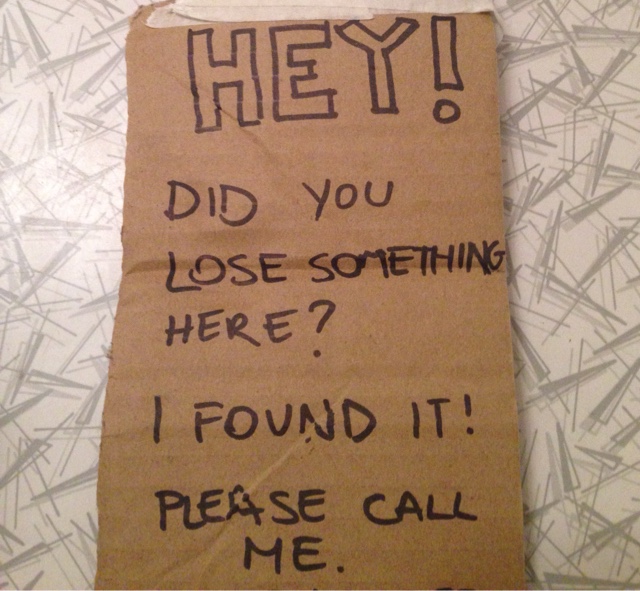 HEY!
DID YOU
LOSE SOMETHING
HERE?
I FOUND IT!
PLEASE CALL
ME.